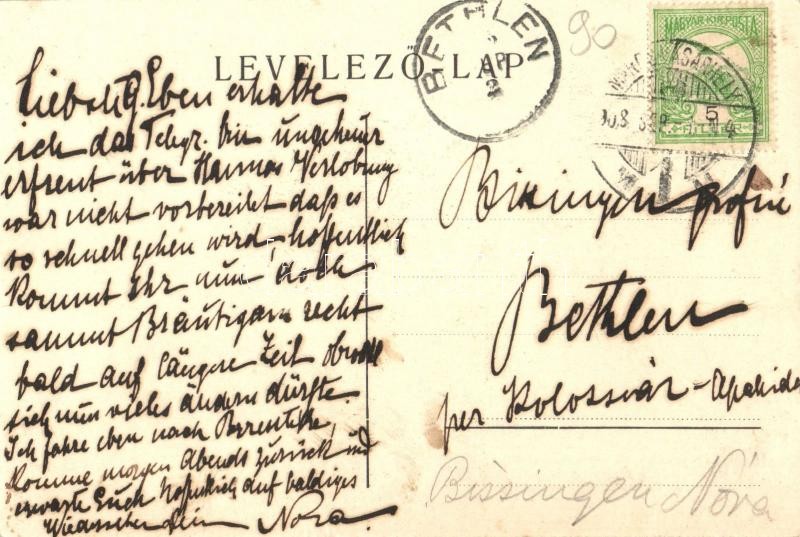 LEVELEZŐ LAP
BETHLEN
90
MAGYAR KIR. POSTA
5
Liebste! Eben erhalte
ich das Telegr. bin ungeheuer
erfreut über Hannas Verlobung
war nicht vorbereitet daß es
so schnell gehen wird, hoffentlich
kommt Ihr nun doch
sammt Bräutigam recht
bald auf längere Zeit obwohl
sich nun vieles ändern dürfte.
Ich fahre eben nach
komme morgen Abends zurück und
erwarte Euch hoffentlich auf baldiges
Wiedersehen Dein Nora
Bissingen grófné
Bethlen
per Kolossvár-Apahida
Bissingen Nóra